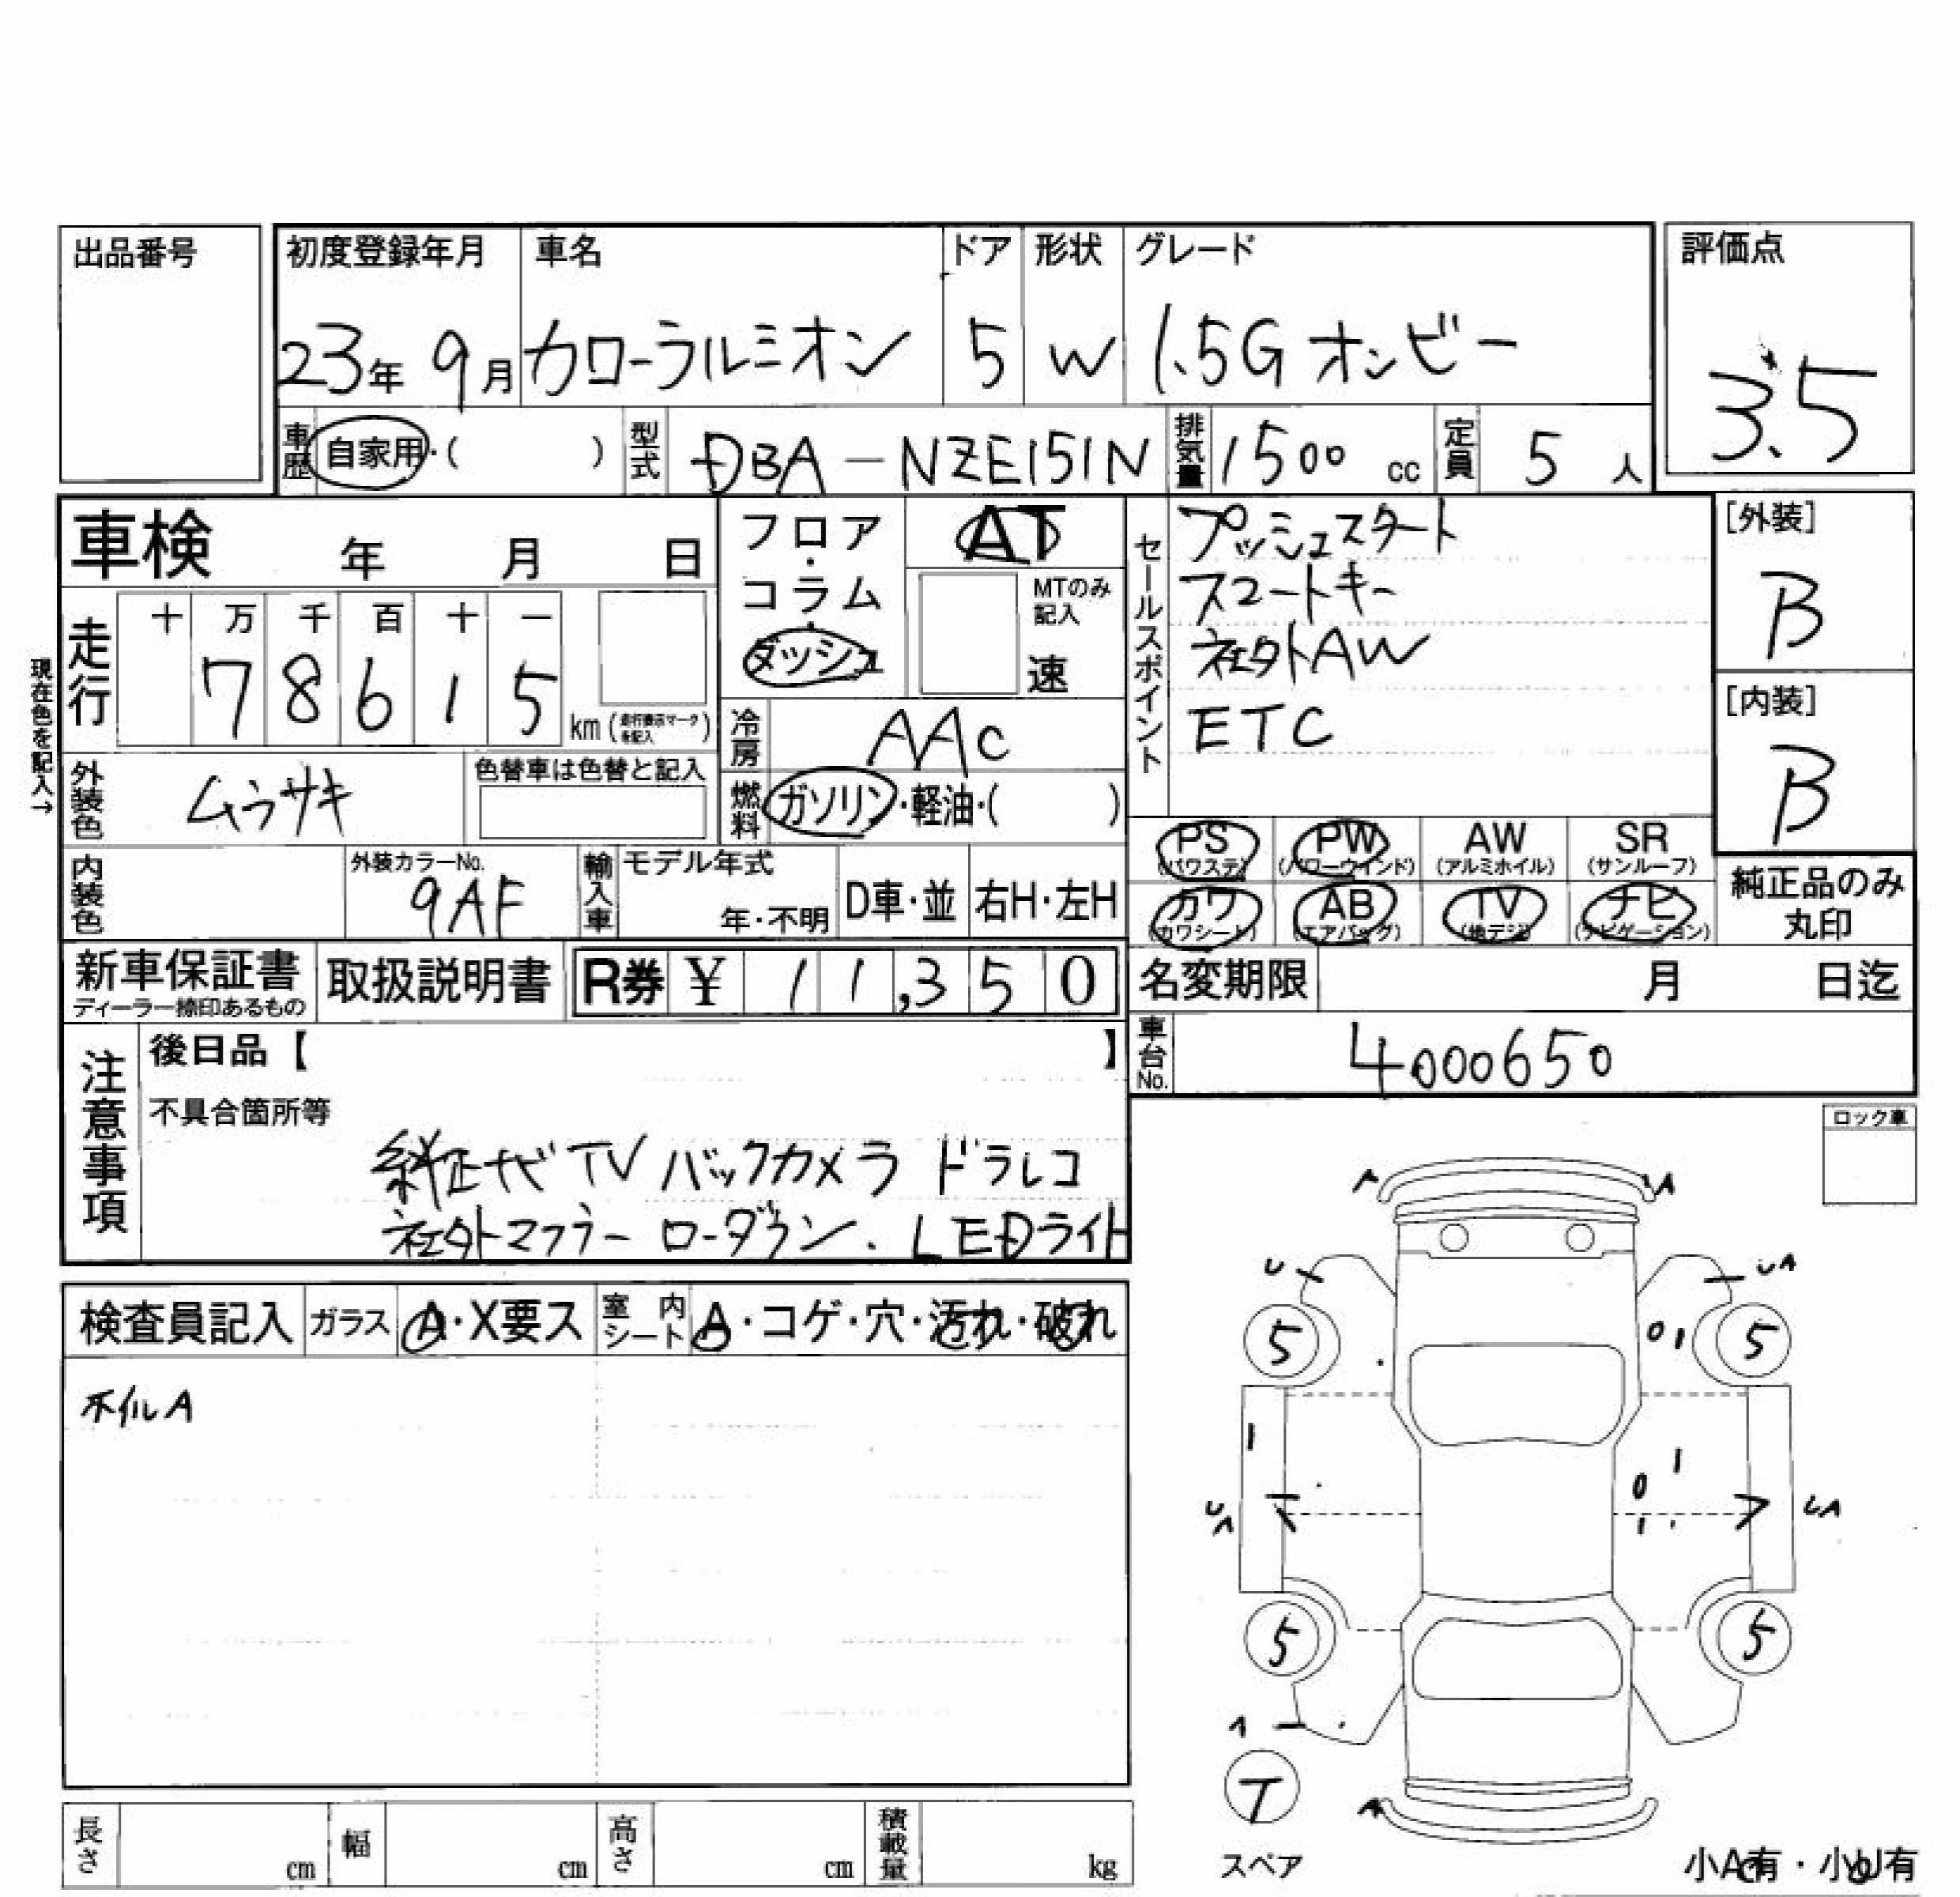 出品番号
初度登録年月 車名 ドア 形状 グレード 評価点
23年 9月 カローラルミオン 5 W 1.5G オンビー
3.5
車歴 自家用・( ) 型式 DBA-NZE151N 排気量 1500 cc 定員 5 人
車検 年 月 日
フロア・コラム・ダッシュ
AT
MTのみ記入
速
セールスポイント
プッシュスタート
スマートキー
社外AW
ETC
[外装]
B
[内装]
B
現在色を記入→
走行 十 万 千 百 十 一
7 8 6 1 5 km (走行表示マークを記入)
冷房 AAC
外装色 ムラサキ 色替車は色替と記入
燃料 ガソリン・軽油・( )
PS (パワステ) PW (パワーウインド) AW (アルミホイル) SR (サンルーフ)
カワ (カワシート) AB (エアバッグ) TV (地デジ) ナビ (ナビゲーション)
純正品のみ
丸印
内装色 外装カラーNo. 9AF 輸入車 モデル年式 年・不明 D車・並 右H・左H
新車保証書 取扱説明書 R券 ¥ 11,350
ディーラー捺印あるもの
名変期限 月 日迄
車台No. 4000650
注意事項
後日品【 】
不具合箇所等
純正ナビ TV バックカメラ ドラレコ
社外マフラー ローダウン. LEDライト
ロック車
検査員記入 ガラス A・X要ス 室内シート A・コゲ・穴・汚れ・破れ
ホイルA
A A
U UA
5 5
UA UA
5 5
T
スペア
長さ cm 幅 cm 高さ cm 積載量 kg
小A有・小U有